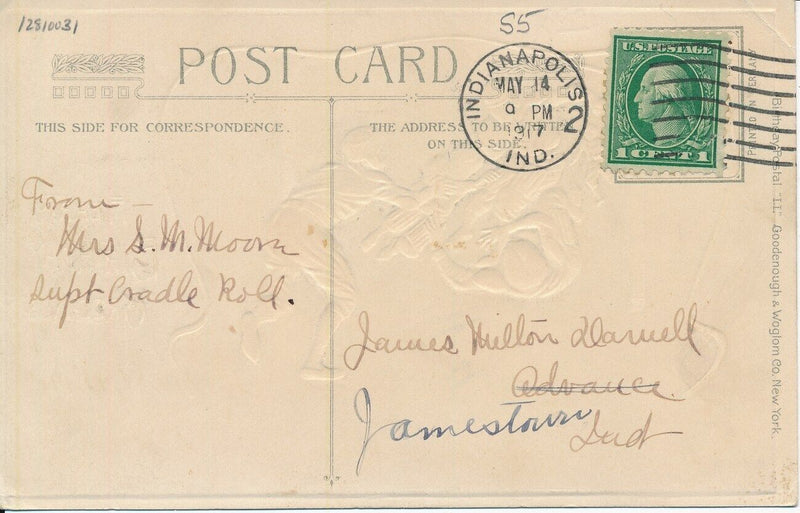 12810031
55
POST CARD
INDIANAPOLIS 2
MAY 14
9 PM
1917
IND.
U.S. POSTAGE
1 CENT 1
PRINTED IN GERMANY
THIS SIDE FOR CORRESPONDENCE.
THE ADDRESS TO BE WRITTEN
ON THIS SIDE.
From -
Mrs S. M. Moore
Supt Cradle Roll.
James Hilton Darnell
Advance.
Jamestown
Ind
Birthday Postal "I.I." Goodenough & Woglom Co. New York.